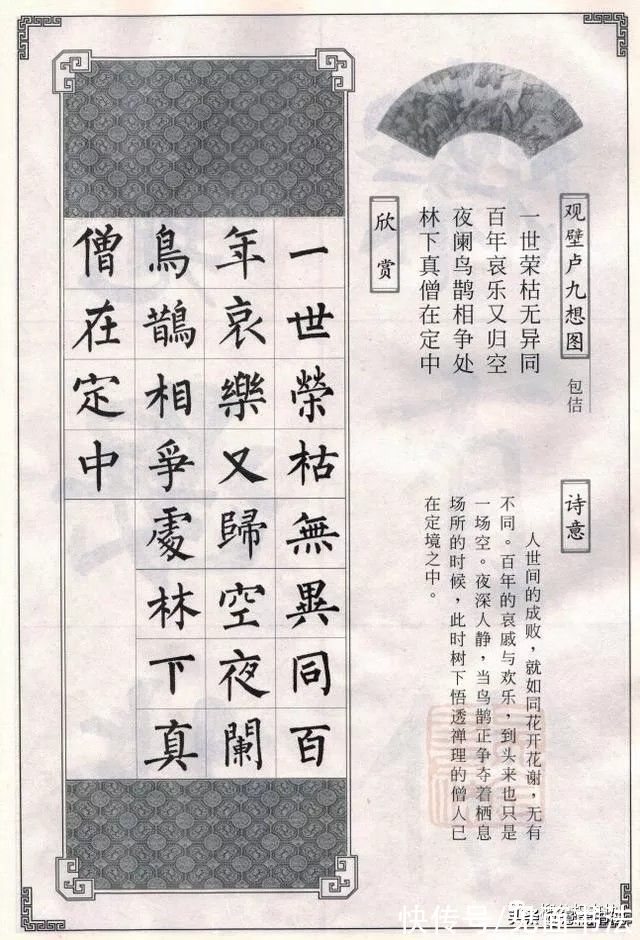 观壁卢九想图
包佶
一世荣枯无异同
百年哀乐又归空
夜阑鸟鹊相争处
林下真僧在定中
欣赏
诗意
人世间的成败，就如同花开花谢，无有
不同。百年的哀戚与欢乐，到头来也只是
一场空。夜深人静，当鸟鹊正争夺着栖息
场所的时候，此时树下悟透禅理的僧人已
在定境之中。
一世榮枯無異同百
年哀樂又歸空夜闌
鳥鵲相爭處林下真
僧在定中
快传号/